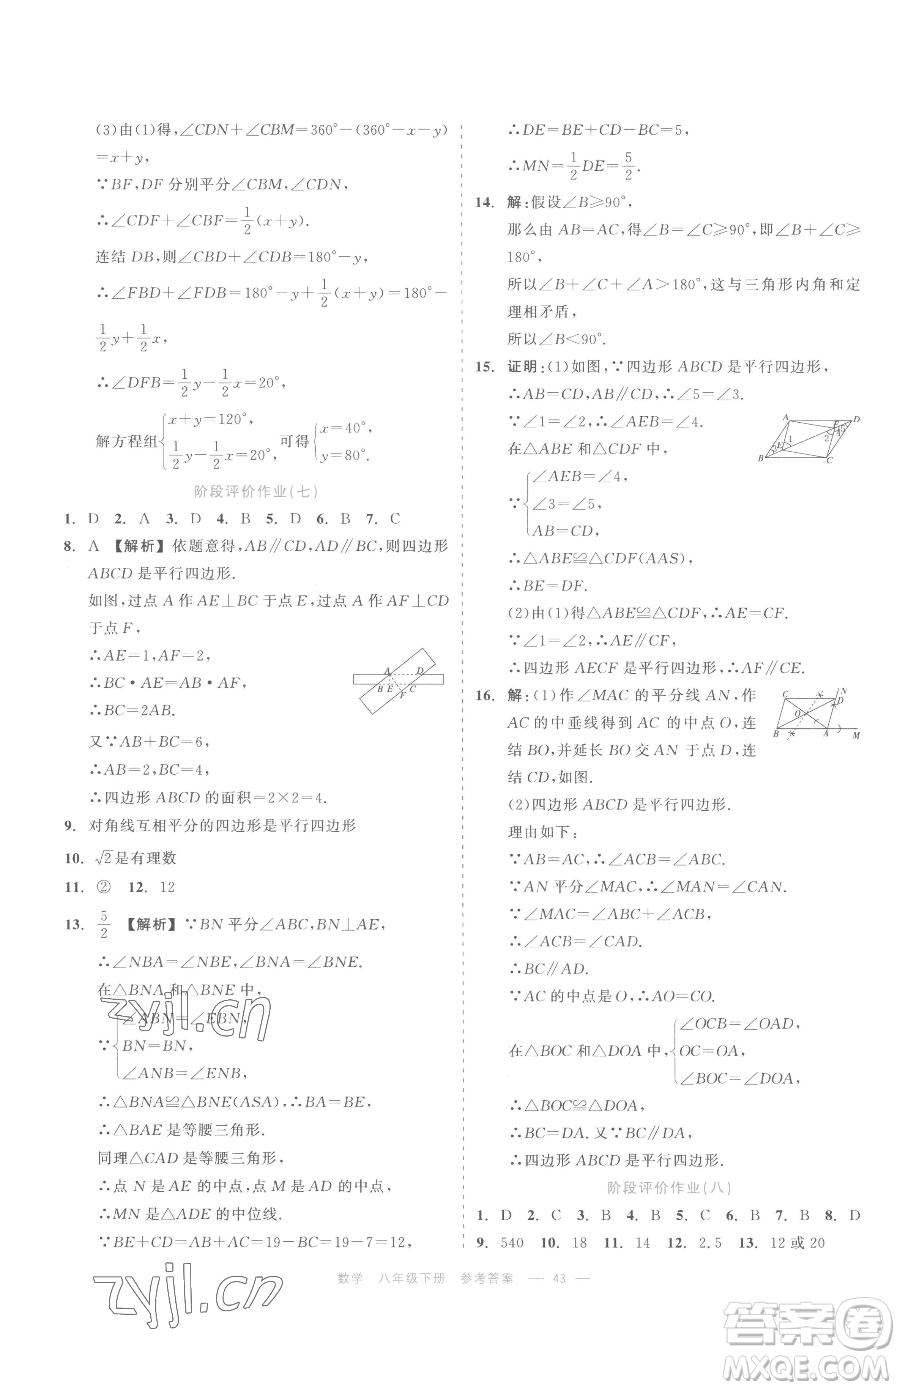 (3)由(1)得,∠CDN+∠CBM=360°-(360°-x-y)
=x+y,
∵BF,DF 分别平分∠CBM,∠CDN,
∴∠CDF+∠CBF=1/2(x+y).
连结 DB,则∠CDB+∠CDB=180°-y,
∴∠FBD+∠FDB=180°-y+1/2(x+y)=180°-
1/2y+1/2x,
∴∠DFB=1/2y-1/2x=20°,
解方程组{x+y=120°, 1/2y-1/2x=20°,可得{x=40°, y=80°.
阶段评价作业(七)
1. D 2. A 3. D 4. B 5. D 6. B 7. C
8. A 【解析】依题意得,AB∥CD,AD∥BC,则四边形
ABCD 是平行四边形.
如图,过点 A 作 AE⊥BC 于点 E,过点 A 作 AF⊥CD
于点 F,
∴AE=1,AF=2,
∴BC·AE=AB·AF,
∴BC=2AB.
又∵AB+BC=6,
∴AB=2,BC=4,
∴四边形 ABCD 的面积=2×2=4.
A D
B E F C
9. 对角线互相平分的四边形是平行四边形
10. √2是有理数
11. ② 12. 12
13. 5/2 【解析】∵BN 平分∠ABC,BN⊥AE,
∴∠NBA=∠NBE,∠BNA=∠BNE.
在△BNA 和△BNE 中,
∵{∠ABN=∠EBN,
BN=BN,
∠ANB=∠ENB,
∴△BNA≌△BNE(ASA),∴BA=BE,
∴△BAE 是等腰三角形.
同理△CAD 是等腰三角形,
∴点 N 是 AE 的中点,点 M 是 AD 的中点,
∴MN 是△ADE 的中位线.
∵BE+CD=AB+AC=19-BC=19-7=12,
∴DE=BE+CD-BC=5,
∴MN=1/2DE=5/2.
14. 解:假设∠B≥90°,
那么由 AB=AC,得∠B=∠C≥90°,即∠B+∠C≥
180°,
所以∠B+∠C+∠A>180°,这与三角形内角和定
理相矛盾,
所以∠B<90°.
15. 证明:(1)如图,∵四边形 ABCD 是平行四边形,
∴AB=CD,AB∥CD,∴∠5=∠3.
∵∠1=∠2,∴∠AEB=∠4.
在△ABE 和△CDF 中,
∵{∠AEB=∠4,
∠3=∠5,
AB=CD,
∴△ABE≌△CDF(AAS),
∴BE=DF.
(2)由(1)得△ABE≌△CDF,∴AE=CF.
∵∠1=∠2,∴AE∥CF,
∴四边形 AECF 是平行四边形,∴AF∥CE.
16. 解:(1)作∠MAC 的平分线 AN,作
AC 的中垂线得到 AC 的中点 O,连
结 BO,并延长 BO 交 AN 于点 D,连
结 CD,如图.
C D N
O
B A M
(2)四边形 ABCD 是平行四边形.
理由如下:
∵AB=AC,∴∠ABC=∠ACB.
∵AN 平分∠MAC,∴∠MAN=∠CAN.
∵∠MAC=∠ABC+∠ACB,
∴∠ACB=∠CAD.
∴BC∥AD.
∵AC 的中点是 O,∴AO=CO.
在△BOC 和△DOA 中,{∠OCB=∠OAD,
OC=OA,
∠BOC=∠DOA,
∴△BOC≌△DOA,
∴BC=DA.又∵BC∥DA,
∴四边形 ABCD 是平行四边形.
阶段评价作业(八)
1. D 2. C 3. B 4. B 5. C 6. B 7. B 8. D
9. 540 10. 18 11. 14 12. 2.5 13. 12 或 20
数学 八年级下册 参考答案 — 43 —
zyjl.cn
zyjl.cn
答案圈
MXQE.COM